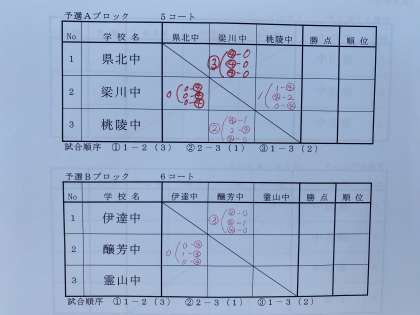 予選Aブロック 5コート
No 学校名 県北中 梁川中 桃陵中 勝点 順位
1 県北中 ③ ④-0 ④-0 ④-0
2 梁川中 0 0-④ 0-④ 0-④ 1 1-④ ④-2 0-④
3 桃陵中 ② ④-1 2-④ ④-0
試合順序 ①1-2(3) ②2-3(1) ③1-3(2)
予選Bブロック 6コート
No 学校名 伊達中 醸芳中 霊山中 勝点 順位
1 伊達中 ③ ④-0 ④-1 ④-0
2 醸芳中 0 0-④ 1-④ 0-④
3 霊山中
試合順序 ①1-2(3) ②2-3(1) ③1-3(2)